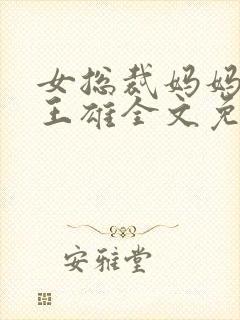 女总裁妈妈
王雄全文免
安雅堂